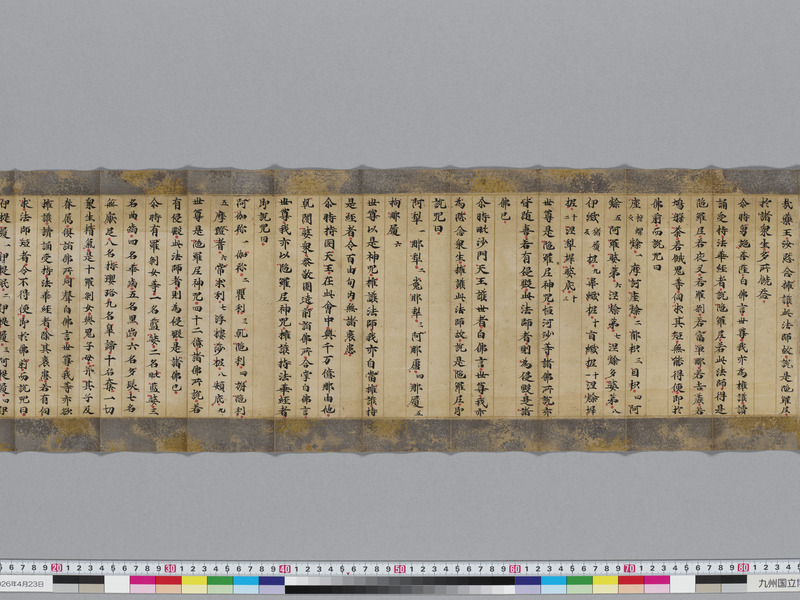 哉藥王汝愍念擁護此法師故說是陁羅尼
於諸衆生多所饒益
尒時勇施菩薩白佛言世尊我亦爲擁護讀
誦受持法華經者說陁羅尼若此法師得是
陁羅尼若夜叉若羅剎若富單那若吉蔗若
鳩槃荼若餓鬼等伺求其短無能得便即於
佛前而說呪曰
座隸一摩訶座隸二郁枳三目枳四阿
隸五阿羅婆第六涅隸第七涅隸多婆第八
伊緻柅九韋緻柅十旨緻柅十一涅隸墀
柅十二涅犁墀婆底十三
世尊是陁羅尼神呪恒河沙等諸佛所說亦
皆隨喜若有侵毀此法師者則爲侵毀是諸
佛已
尒時毗沙門天王護世者白佛言世尊我亦
爲愍念衆生擁護此法師故說是陁羅尼即
說呪曰
阿犁一那犁二㝹那犁三阿那盧四那履五
拘那履六
世尊以是神呪擁護法師我亦自當擁護持
是經者令百由旬內無諸衰患
尒時持國天王在此會中與千万億那由他
乾闥婆衆恭敬圍遶前詣佛所合掌白佛言
世尊我亦以陁羅尼神呪擁護持法華經者
即說呪曰
阿伽祢一伽祢二瞿利三乾陁利四旃陁利
五摩蹬耆六常求利七浮樓莎柅八頞底九
世尊是陁羅尼神呪四十二億諸佛所說若
有侵毀此法師者則爲侵毀是諸佛已
尒時有羅剎女等一名藍婆二名毗藍婆三
名曲齒四名華齒五名黑齒六名多髮七名
無猒足八名持瓔珞九名睾諦十名奪一切
衆生精氣是十羅剎女與鬼子母并其子及
眷屬俱詣佛所同聲白佛言世尊我等亦欲
擁護讀誦受持法華經者除其衰患若有伺
求法師短者令不得便即於佛前而說呪曰
伊提履一伊提泯二伊提履三阿提履四伊
20 30 40 50 60 70 80
2026年4月23日
九州国立博